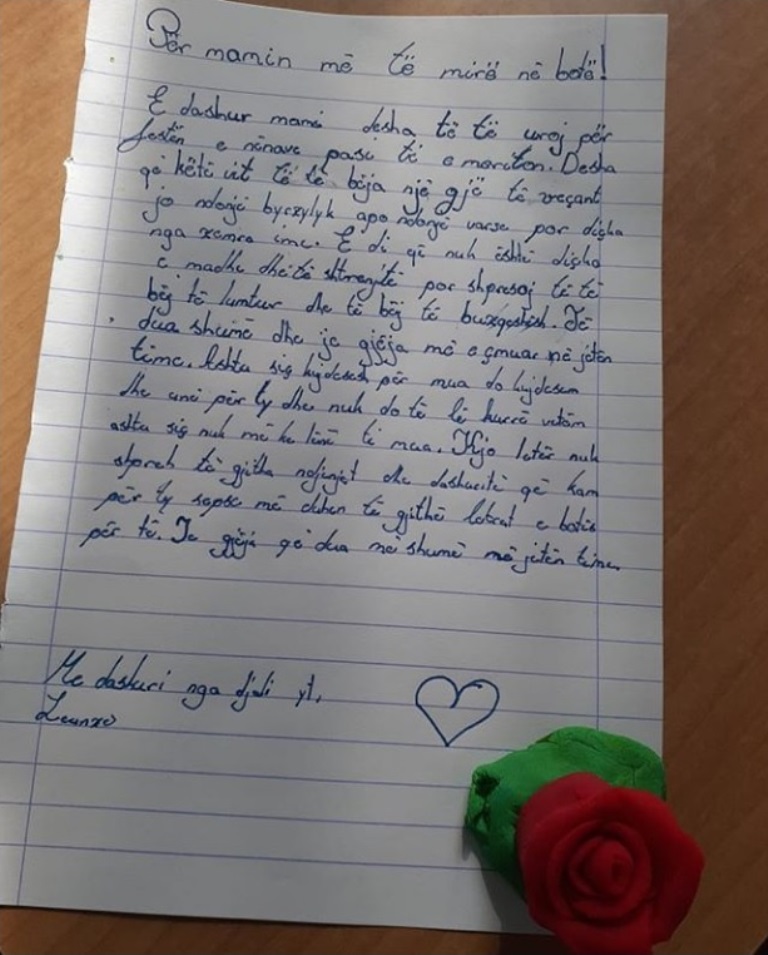 Për mamin më të mirë në botë!
E dashur mami desha të të uroj për
festën e nënave pasi të e meriton. Desha
që këtë vit të të bëja një gjë të veçant
jo ndonjë byczylyk apo ndonjë varse por diçka
nga zemra ime. E di që nuk është diçka
e madhe dhe të shtrenjtë por shpresoj të të
bëj të lumtur dhe të bëj të buzqeshësh. Të
dua shumë dhe je gjëja më e çmuar në jetën
time. Ashtu siç kujdesesh për mua do kujdesem
dhe unë për ty dhe nuk do të lë kurrë vetëm
ashtu siç nuk më ke lënë ti mua. Kjo letër nuk
shpreh të gjitha ndjenjat dhe dashuritë që kam
për ty sepse më duhen të gjithë letrat e botës
për të. Je gjëja që dua më shumë në jetën time.
Me dashuri nga djali yt,